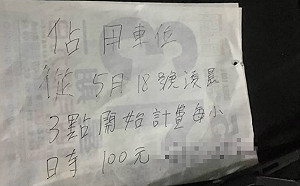 佔用車位
從5月18號淩晨
3點開始計量每小
日寺 100元